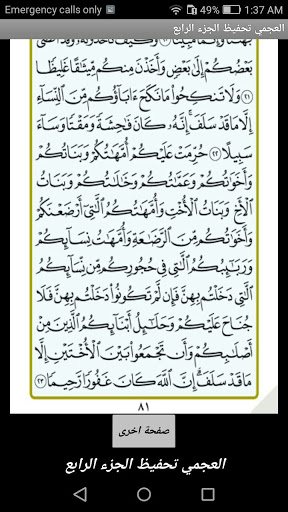 Emergency calls only
1:37 AM
العجمي تحفيظ الجزء الرابع
بُهْتَٰنًا وَإِثْمًا مُّبِينًا ۝٢٠ وَكَيْفَ تَأْخُذُونَهُۥ وَقَدْ أَفْضَىٰ
بَعْضُكُمْ إِلَىٰ بَعْضٍ وَأَخَذْنَ مِنكُم مِّيثَٰقًا غَلِيظًا
۝٢١ وَلَا تَنكِحُوا۟ مَا نَكَحَ ءَابَآؤُكُم مِّنَ ٱلنِّسَآءِ
إِلَّا مَا قَدْ سَلَفَ ۚ إِنَّهُۥ كَانَ فَٰحِشَةً وَمَقْتًا وَسَآءَ
سَبِيلًا ۝٢٢ حُرِّمَتْ عَلَيْكُمْ أُمَّهَٰتُكُمْ وَبَنَاتُكُمْ
وَأَخَوَٰتُكُمْ وَعَمَّٰتُكُمْ وَخَٰلَٰتُكُمْ وَبَنَاتُ
ٱلْأَخِ وَبَنَاتُ ٱلْأُخْتِ وَأُمَّهَٰتُكُمُ ٱلَّٰتِىٓ أَرْضَعْنَكُمْ
وَأَخَوَٰتُكُم مِّنَ ٱلرَّضَٰعَةِ وَأُمَّهَٰتُ نِسَآئِكُمْ
وَرَبَٰٓئِبُكُمُ ٱلَّٰتِى فِى حُجُورِكُم مِّن نِّسَآئِكُمُ
ٱلَّٰتِى دَخَلْتُم بِهِنَّ فَإِن لَّمْ تَكُونُوا۟ دَخَلْتُم بِهِنَّ فَلَا
جُنَاحَ عَلَيْكُمْ وَحَلَٰٓئِلُ أَبْنَآئِكُمُ ٱلَّذِينَ مِنْ
أَصْلَٰبِكُمْ وَأَن تَجْمَعُوا۟ بَيْنَ ٱلْأُخْتَيْنِ إِلَّا
مَا قَدْ سَلَفَ ۗ إِنَّ ٱللَّهَ كَانَ غَفُورًا رَّحِيمًا ۝٢٣
٨١
صفحة اخرى
العجمي تحفيظ الجزء الرابع